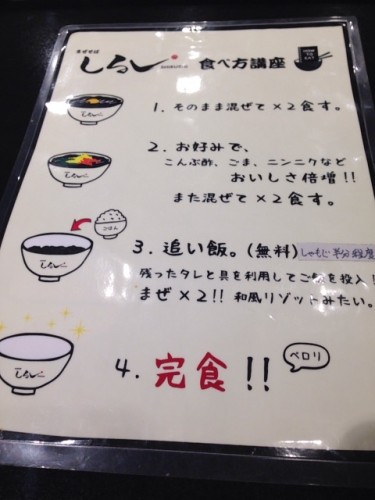 まぜそば
しるし 食べ方講座
しるし
1. そのまま混ぜて×2食す。
2. お好みで、
しるし
こんぶ酢、ごま、ニンニクなど
おいしさ倍増!!
また混ぜて×2食す。
ごはん
3. 追い飯。(無料)しゃもじ半分程度
しるし
残ったタレと具を利用してご飯を投入!
まぜ×2!! 和風リゾットみたい。
しるし
4. 完食!!
ペロリ